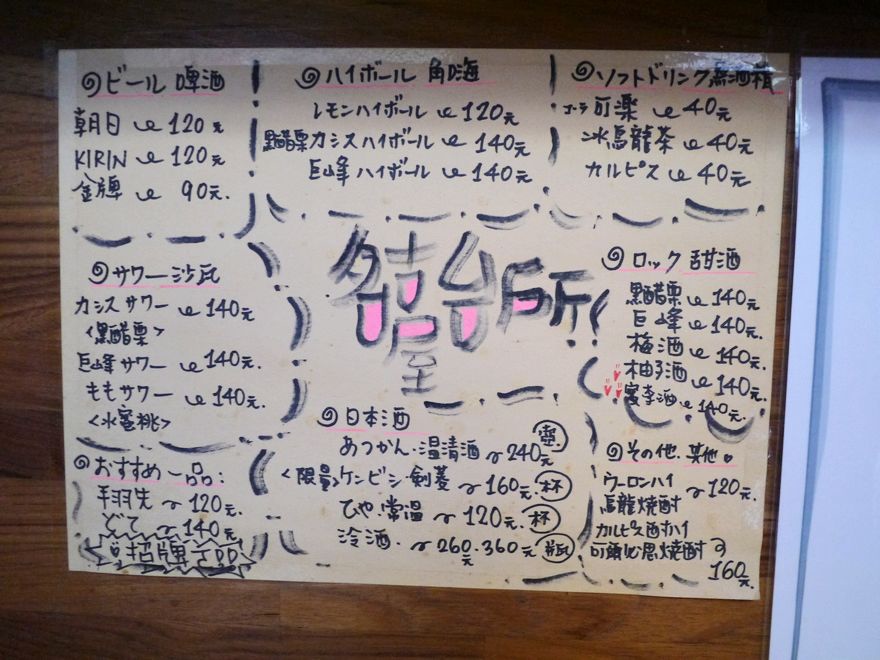 ビール 啤酒
朝日 120元
KIRIN 120元
金牌 90元.
ハイボール 角嗨
レモンハイボール 120元
黑醋栗カシスハイボール 140元
巨峰ハイボール 140元
ソフトドリンク無酒精
コーラ可楽 40元
冰烏龍茶 40元
カルピス 40元
サワー沙瓦
カシスサワー 140元
<黑醋栗>
巨峰サワー 140元.
ももサワー 140元.
<水蜜桃>
名古屋台所
ロック 甜酒
黑醋栗 140元.
巨峰 140元.
梅酒 140元.
柚子酒 140元.
蜜李酒 140元.
おすすめ一品:
手羽先 120元.
どて 140元.
招牌
日本酒
あつかん・温清酒 240元 壺
<限量>ケンビシ・剣菱 160元. 杯
ひや・常温 120元. 杯
冷酒. 260元.360元. 瓶
その他. 其他
ウーロンハイ 120元.
烏龍焼酎
カルピス酎ハイ
可爾必思焼酎
160元.